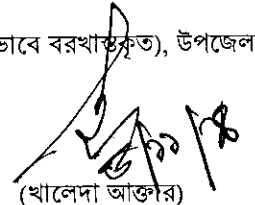 ভাবে বরখাস্তকৃত), উপজেল
(খালেদা আক্তার)